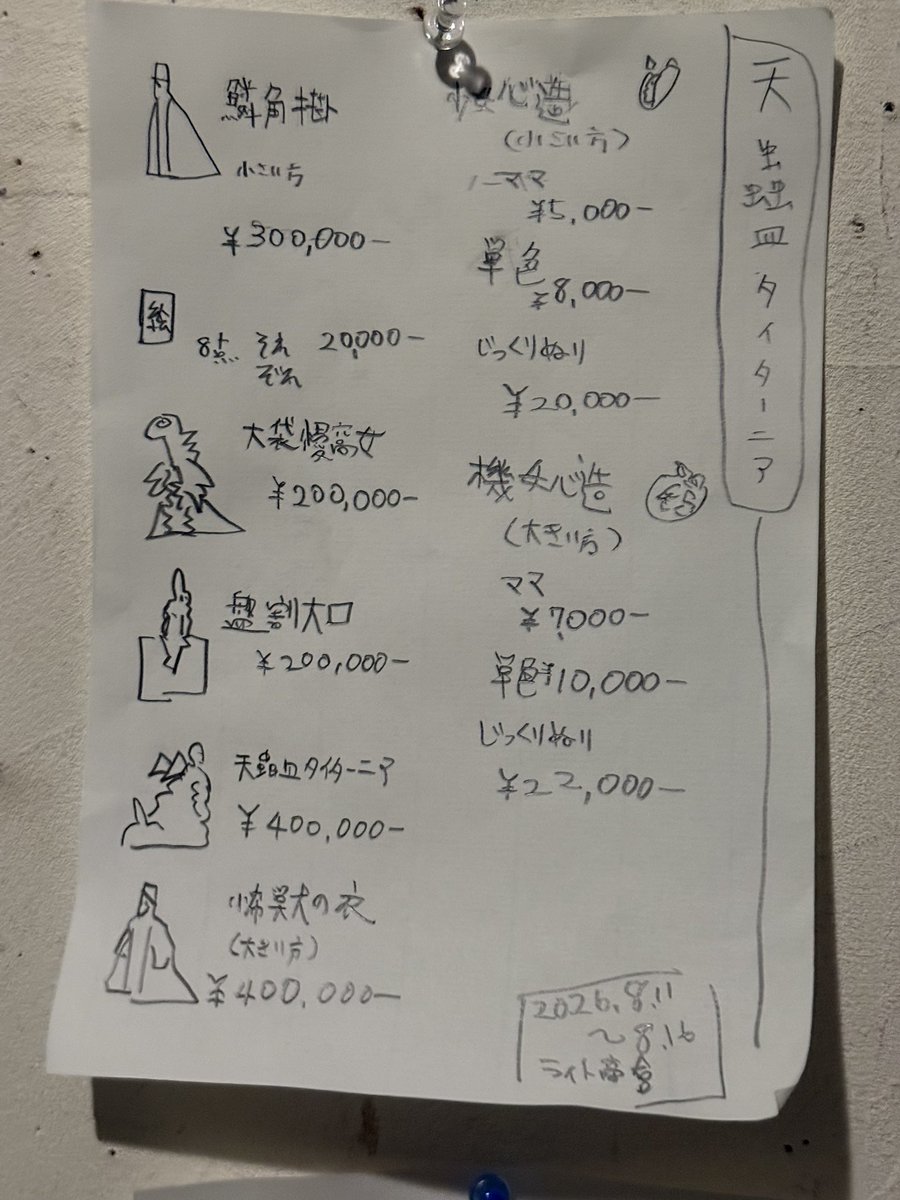 鱗角掛
小さい方
¥300,000-
絵
8点 それぞれ 20,000-
大袋慢腐女
¥200,000-
盤割大口
¥200,000-
天蟲皿タイターニア
¥400,000-
怖異犬の衣
(大きい方)
¥400,000-
心造
(小さい方)
ママ
¥5,000-
単色
¥8,000-
じっくりぬり
¥20,000-
機女心造
(大きい方)
ママ
¥7,000-
単色¥10,000-
じっくりぬり
¥22,000-
天蟲皿タイターニア
2026.8.11
~8.16
ライト商會